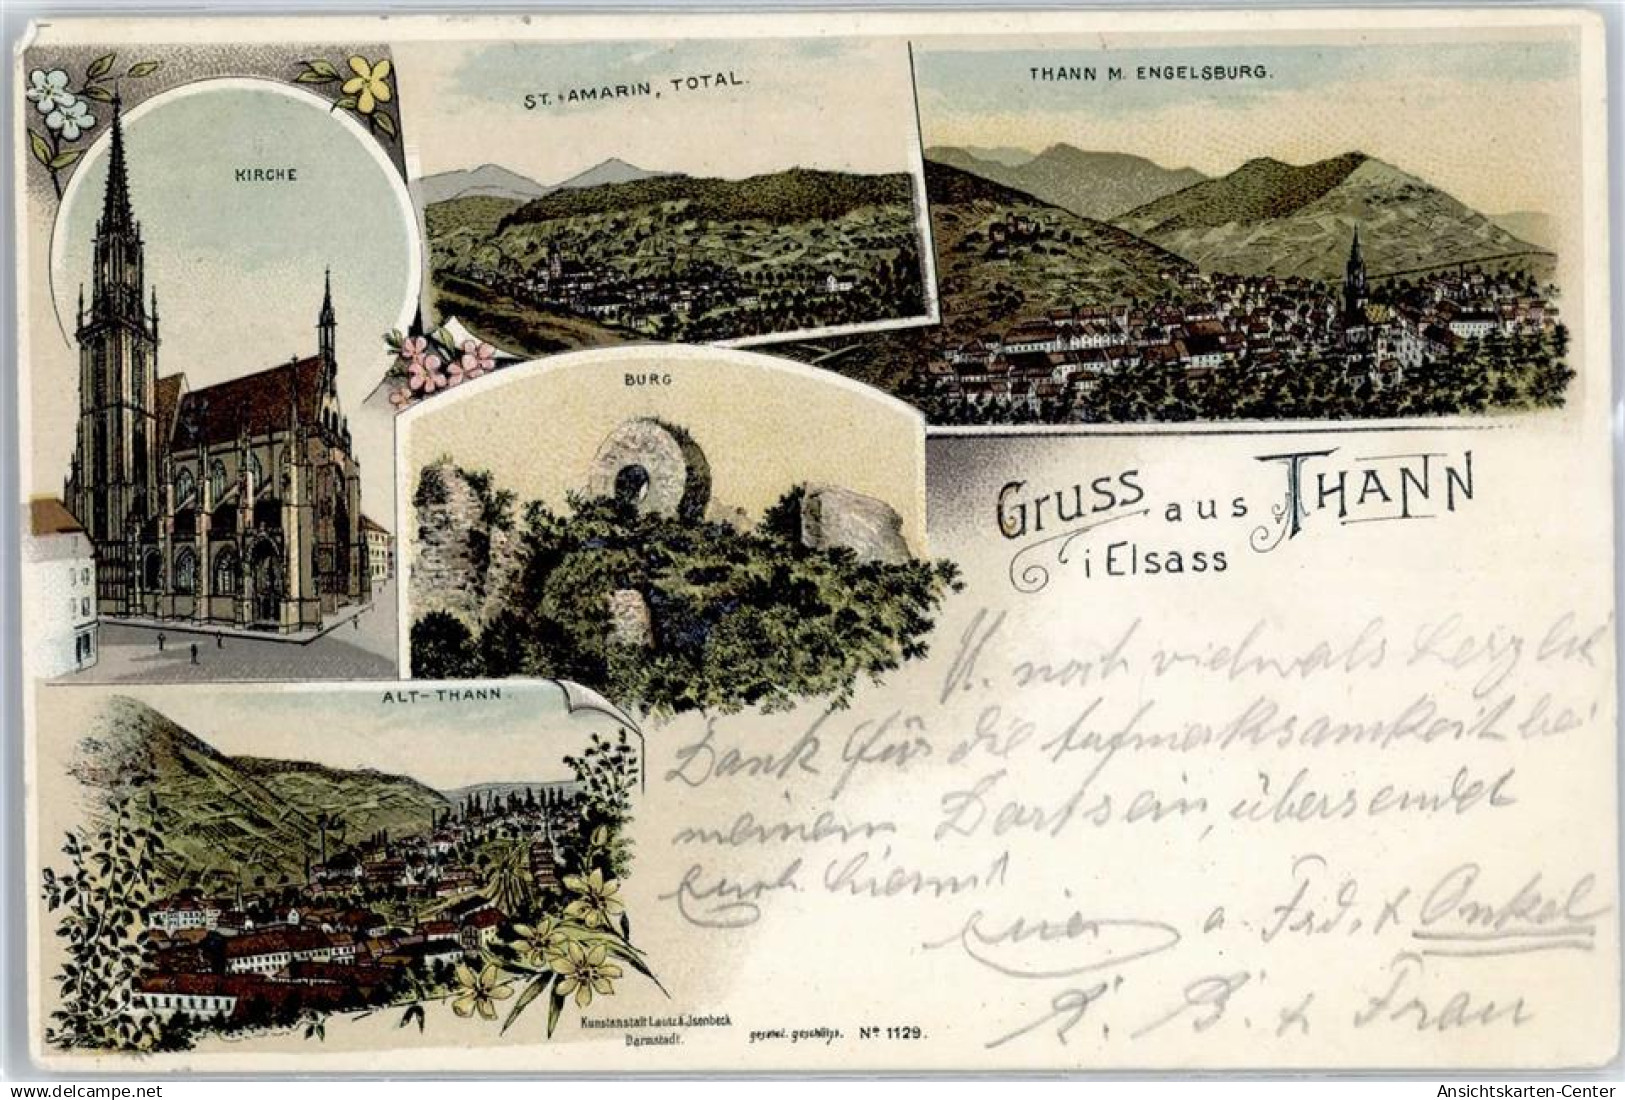 KIRCHE
ST. AMARIN, TOTAL.
THANN M. ENGELSBURG.
BURG
Gruss aus THANN
i Elsass
ALT-THANN.
U. noch vielmals herzlich
Dank für die Aufmerksamkeit bei
meinem Dortsein, übersendet
euch hiermit
euer a. Frd. & Onkel
K. B. & Frau
Kunstanstalt Lautz & Isenbeck
Darmstadt.
gesetzl. geschützt. No 1129.
Ansichtskarten-Center